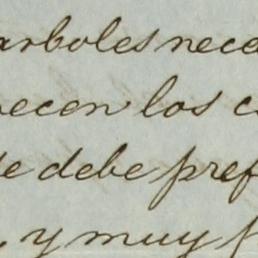 arboles nece
ecen los c
e debe pref
, y muy f